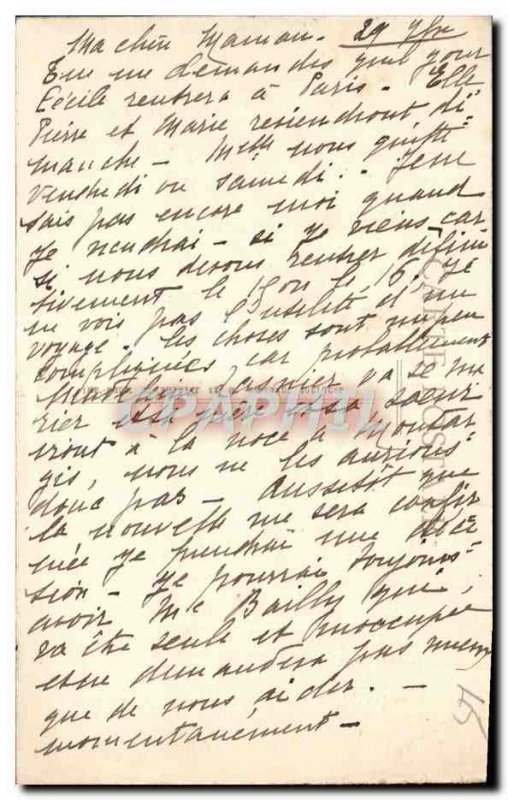 Ma chère Maman. 29 7bre
Tu me demandes quel jour
Cécile rentrera à Paris. Elle
Pierre et Marie reviendront di-
manche - Melle nous quitte
vendredi ou samedi. Je ne
sais pas encore moi quand
je viendrai - si je viens car
si nous devons rentrer défini
tivement le 15 ou le 16. Je
ne vois pas l'utilité d'un
voyage. Les choses sont un peu
compliquées car probablement
va se ma
rier sa mère et sa sœur
iront à la noce à Montar
gis, nous ne les aurions
donc pas - Aussitôt que
la nouvelle me sera confir
mée je prendrai une déci
sion - Je pourrai toujours
avoir Me Bailly qui
va être seule et inoccupée
et ne demandera pas mieux
que de nous aider. -
momentanément -
CARTE POSTALE
CPAPHIL
15